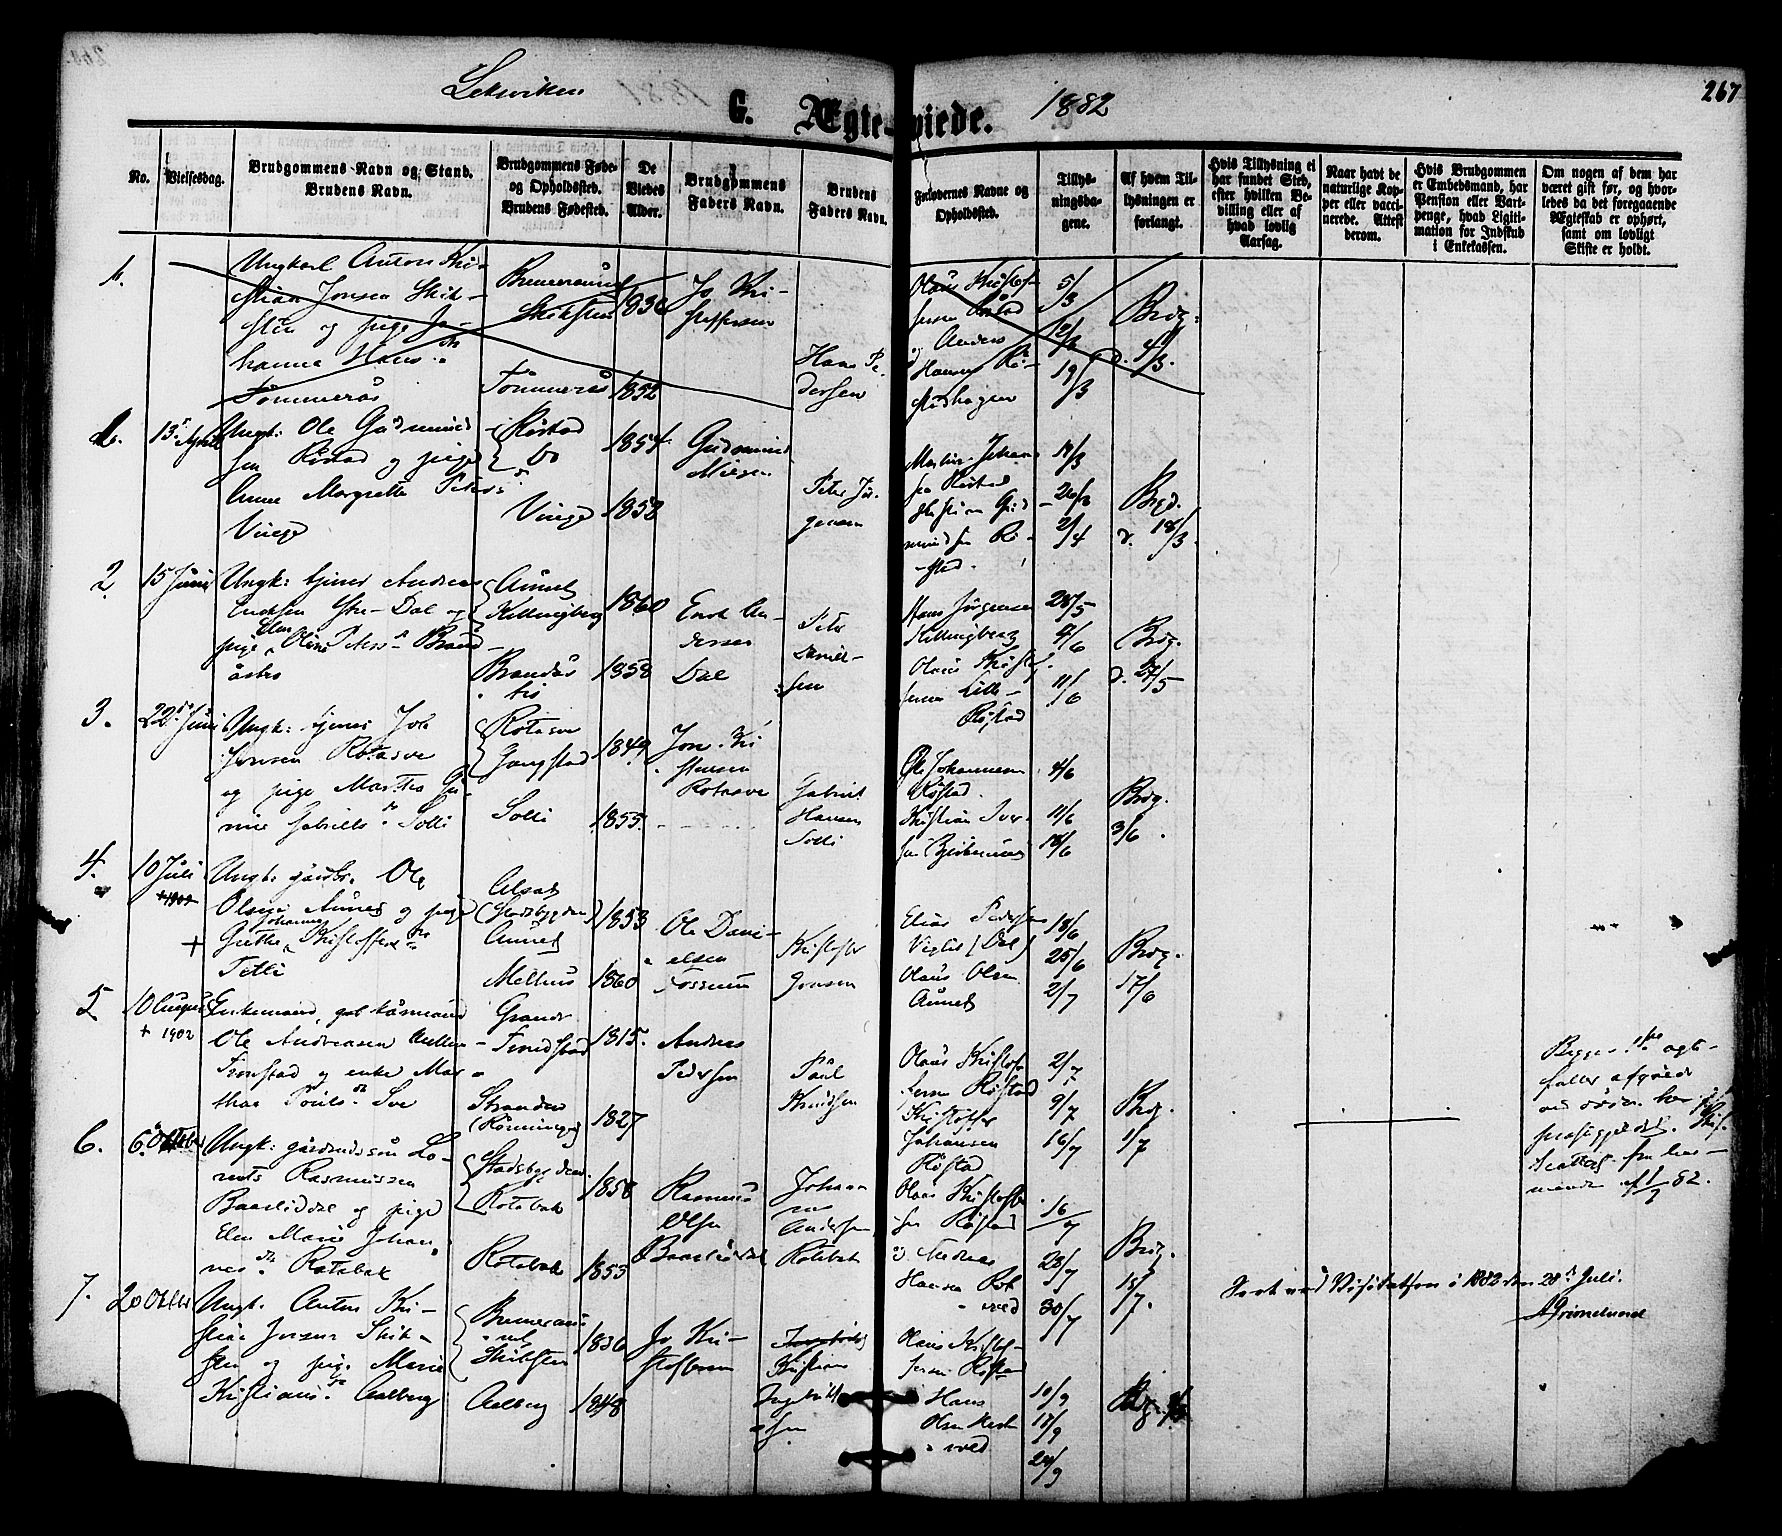 267
Leksviken
G. Ægte-viede. 1882
No.
Vielsesdag.
Brudgommens Navn og Stand.
Brudens Navn.
Brudgommens Føde-
og Opholdssted.
Brudens Fødested.
De
Viedes
Alder.
Brudgommens
Faders Navn.
Brudens
Faders Navn.
Forlovernes Navne og
Opholdssted.
Tillys-
ningsda-
gene.
Af hvem Til-
lysningen er
forlangt.
Hvis Tillysning ei
har fundet Sted,
efter hvilken Be-
villing eller af
hvad lovlig
Aarsag.
Naar havt de
naturlige Kop-
per eller vacci-
nerede. Attest
derom.
Hvis Brudgommen
er Embedsmand, har
Pension eller Vart-
penge, hvad Legiti-
mation for Indskub
i Enkekassen.
Om nogen af dem har
været gift før, og hvor-
ledes da det foregaaende
Ægteskab er ophørt,
samt om lovligt
Skifte er holdt.
1.
Ungkarl Anton Kri-
stian Jonsen Skik-
stün og pige Jo-
hanna Hans dr
Tömmerås
Skikstün
Tömmerås
1836
1852
Jo Kri-
stoffersen
Hans Pe-
dersen
Olaus Kristof-
fersen Röstad
og Anders
Hansen Rö-
stadhagen
5/3
12/3
19/3
Brdg.
d. 4/3.
1.
13 April
Ungk: Ole Gudmund
sen Röstad og pige
Anne Margrette Peters dr
Vinge
Röstad
do
Vinge
1854
1858
Gudmund
Nilsen
Peter Jör-
gensen
Martin Johan
sen Röstad
Kristian Gud
mundsen Rö-
stad.
19/3
26/3
2/4
Brgd.
d. 18/3.
2
15 Juni
Ungk: tjener Andreas
Endresen Dal og
pige Elen Oline Peters dr Brand-
åstrø
Aunet
Killingberg
Brandås
trö
1860
1858
Endr An-
dersen
Dal
Peter
Daniel-
sen
Hans Jörgensen
Killingberg
Olaus Kristof-
fersen Lille-
Röstad
28/5
4/6
11/6
Brdg.
d. 27/5
3.
22de Juni
Ungk: tjener Job
Jonsen Rotasve
og pige Martha Gu-
rine Gabriels dr Solli
Rotasve
Gangstad
Solli
1849
1855.
Jon Kri
stensen
Rotasve
Gabriel
Hansen
Solli
Ole Johannesen
Röstad.
Kristian Iver-
sen
4/6
11/6
18/6
Brdg.
3/6.
4.
10 Juli
+ 1902
+
Ungk: gårdbr. Ole
Olsen Aunet og pige
Johanna
Grethe Kristoffers dr
Telli
(Stadsbygden)
Aunet
Melhus
1853
1860
Ole Dani-
elsen
Fossum
Kristoffer
Jonsen
Elias Pedersen
Viglit (Dal)
Olaus Olsen
Aunet
18/6
25/6
2/7
Brdg.
17/6
5
10 August
+ 1902
Enkemand, gbl. kårmand
Ole Andreasen Mellem
Tronstad og enke Mar-
tha Pouls dr Sve
Grande
Tronstad
Stranden
(Rönningen)
1815.
1827
Andreas
Pedersen
Paul
Knudsen
Olaus Kristof-
fersen Röstad
Kristoffer
Johansen
Röstad
2/7
9/7
16/7
Brdg.
1/7
Begges 1ste ægte-
fæller afgåede
ved döden. har
Skif-
teattest fra lens-
manden af 1/7 82.
6.
6. Oktober
Ungk: gårdmandssön Lo-
rents Rasmussen
Baarliddal og pige
Elen Marie Johan-
nes dr Rotabak
Stadsbygden.
Rotabak
Rotabak
1858
1853
Rasmus
Olsen
Baarliddal
Johan
nes
Andersen
Rotabak
Olaus Kristoffer
sen Röstad
og Andreas
Hansen Rot
vold
16/7
23/7
30/7
Brdg.
15/7.
Seet ved Visitatsen i 1882 den 28de Juli.
Grönelund
7.
20 Oktbr
Ungk. Anton Kri-
stian Jonsen Skik-
stün og pige Marie
Kristians dr Aalberg
Skikstün
Aalberg
1836
1848
Jo Kri-
stoffersen
Kristian
Ingebrikt
sen
Olaus Kristof-
fersen Röstad
Hans
Olsen
vold
10/9
17/9
24/9
Brdg.